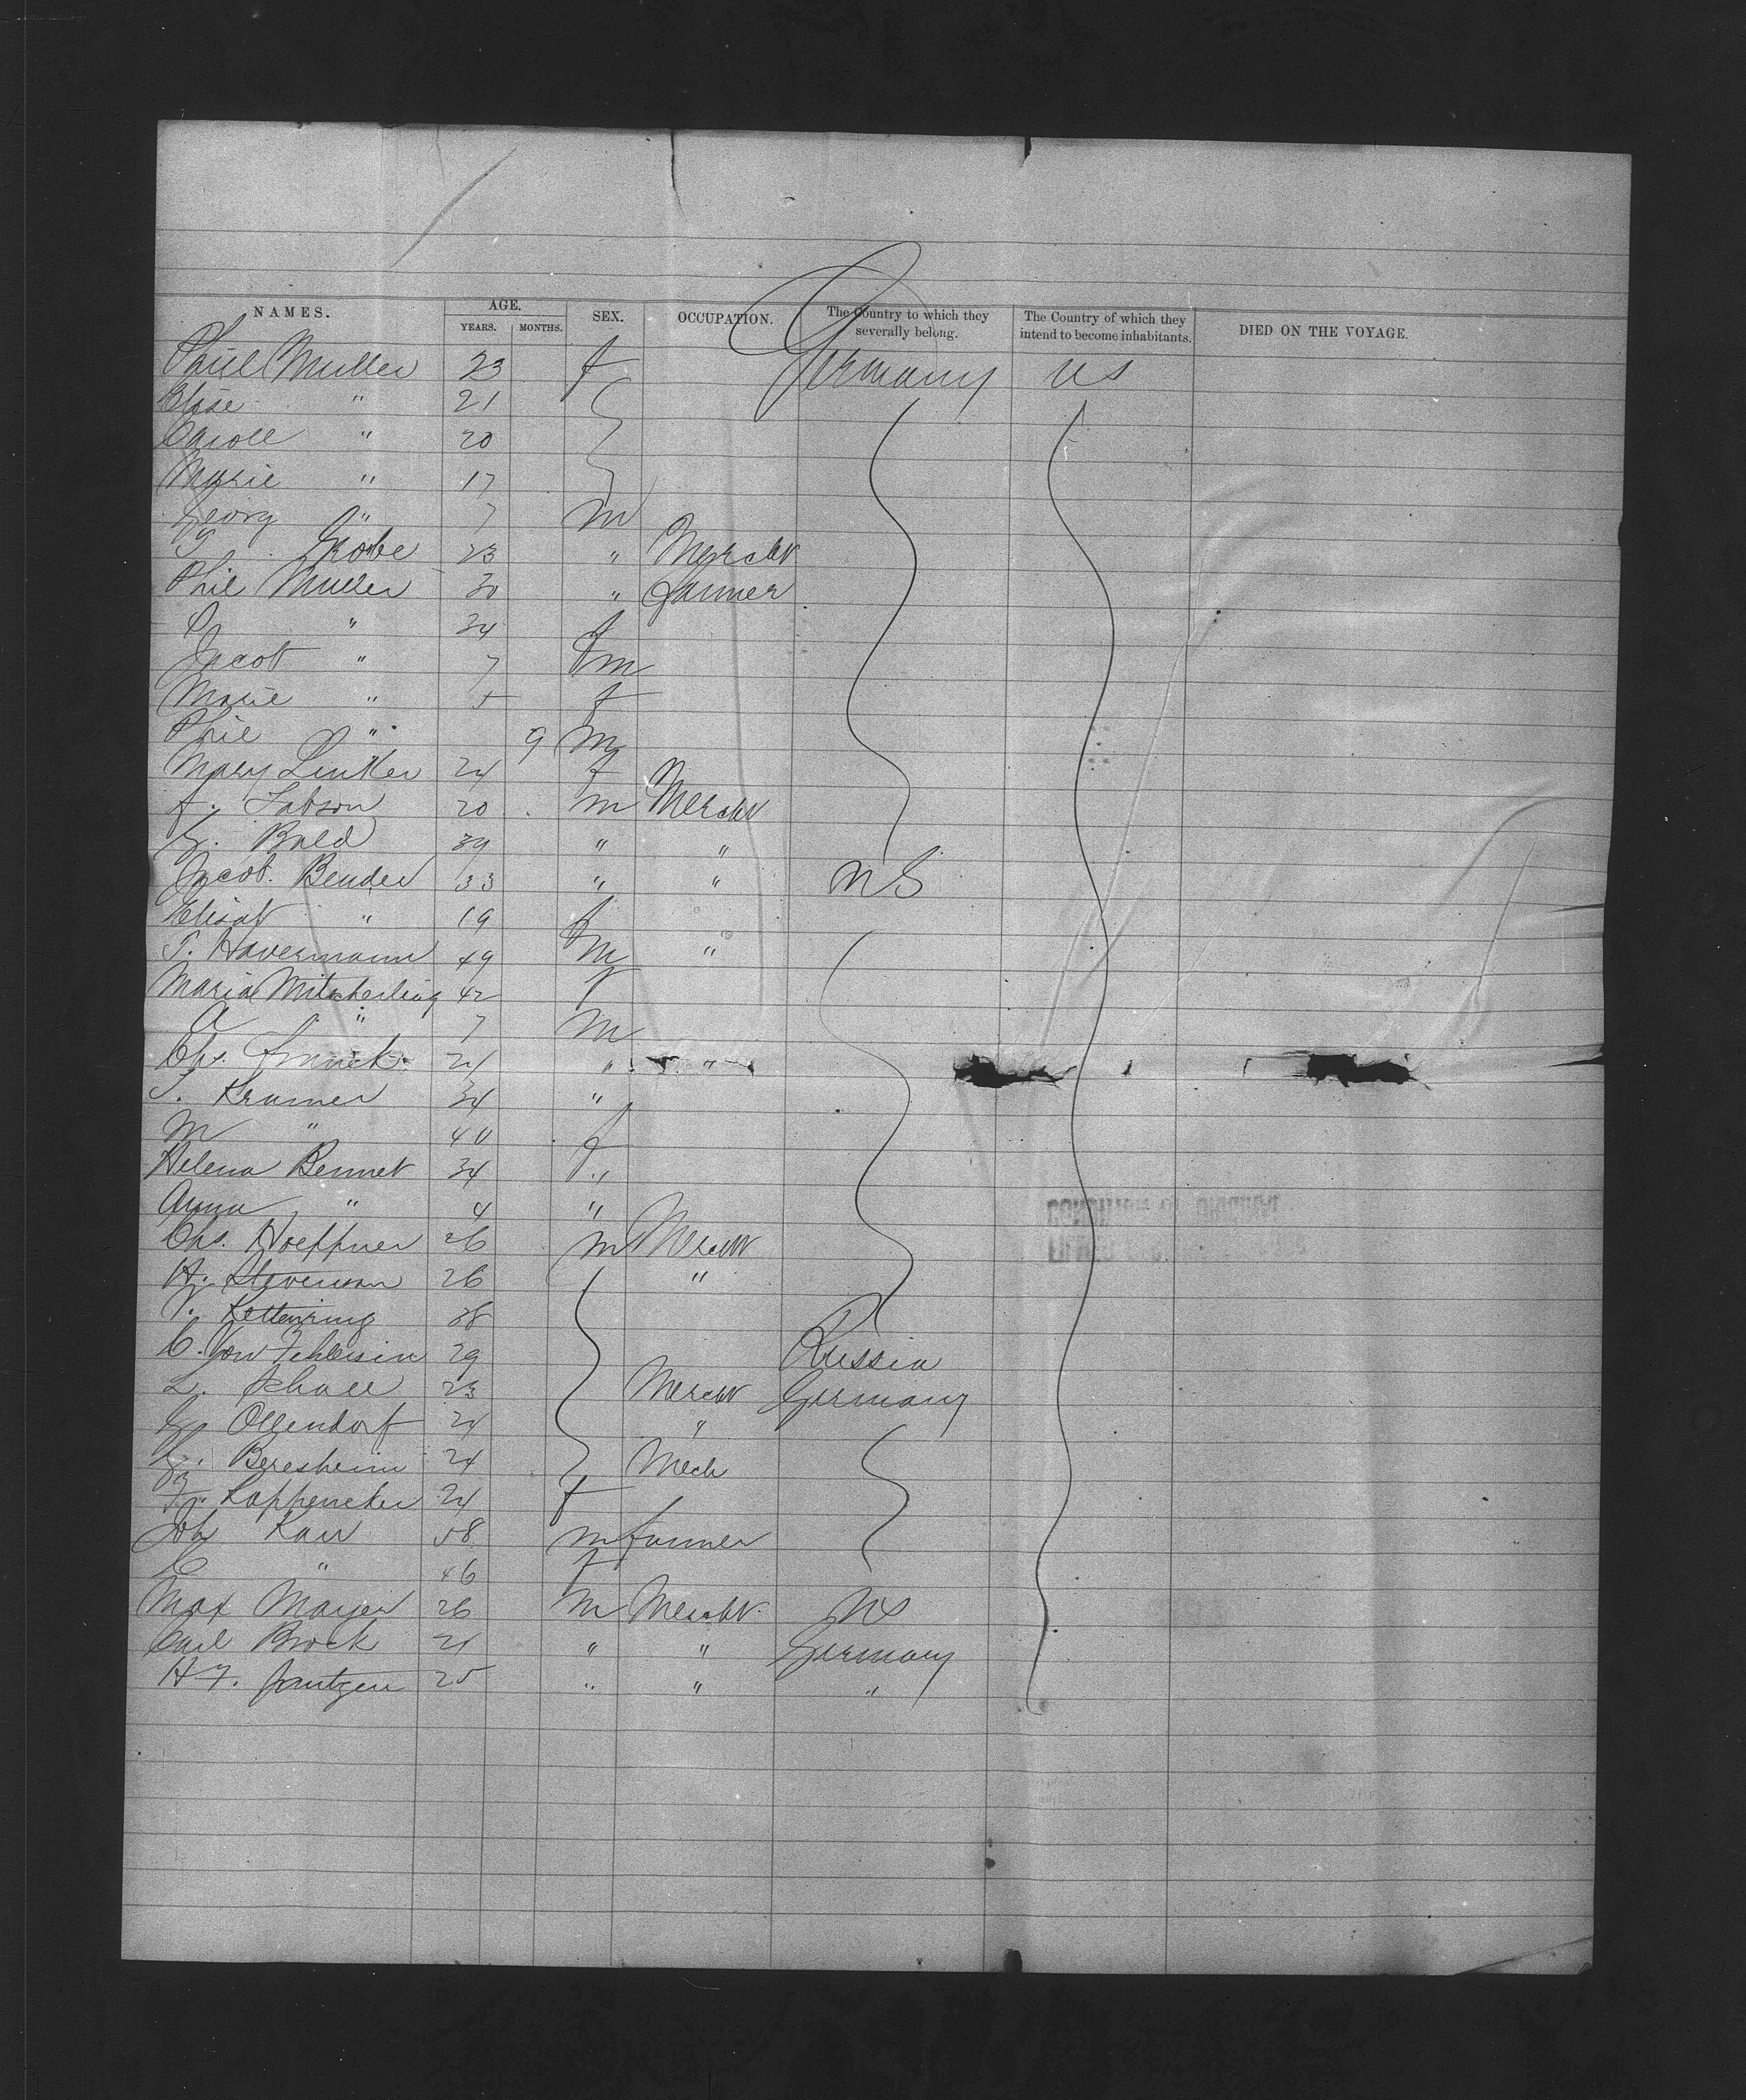 NAMES. AGE. YEARS. MONTHS. SEX. OCCUPATION. The Country to which they severally belong. The Country of which they intend to become inhabitants. DIED ON THE VOYAGE.
Muller 23 f Germany US
Elise " 21
" 20
Marie " 17
Georg " 7 M
Grobe 23 " Mercht
Phil Muller 30 " Farmer
" 34 f
Jacob " 7 m
Marie " 5 f
Phil " 9 M
Mary Linker 24 f
f. 20 m Mercht
G. Bald 39 " "
Jacob Bender 33 " " US
Elisab " 19 f
T. Havermann 49 M "
Maria Mitscherling 42 f
A " 7 M
Chs. 24 " "
S. Kramer 34 "
M " 40 f
Helena Bennet 34 "
Anna " 4 "
Chs. Hoeffner 26 m Mercht
H. Stevenson 26 "
Kettenring 28
C. Von 29 Russia
L. Schall 23 Mercht Germany
G. Ollendorf 24 "
G. Beresheim 24 Mech
24 f
Joh Karr 58 m farmer
C " 46 f
Max Mayer 26 M Mercht US
Carl Brock 21 " " Germany
H F. Jantzen 25 " " "